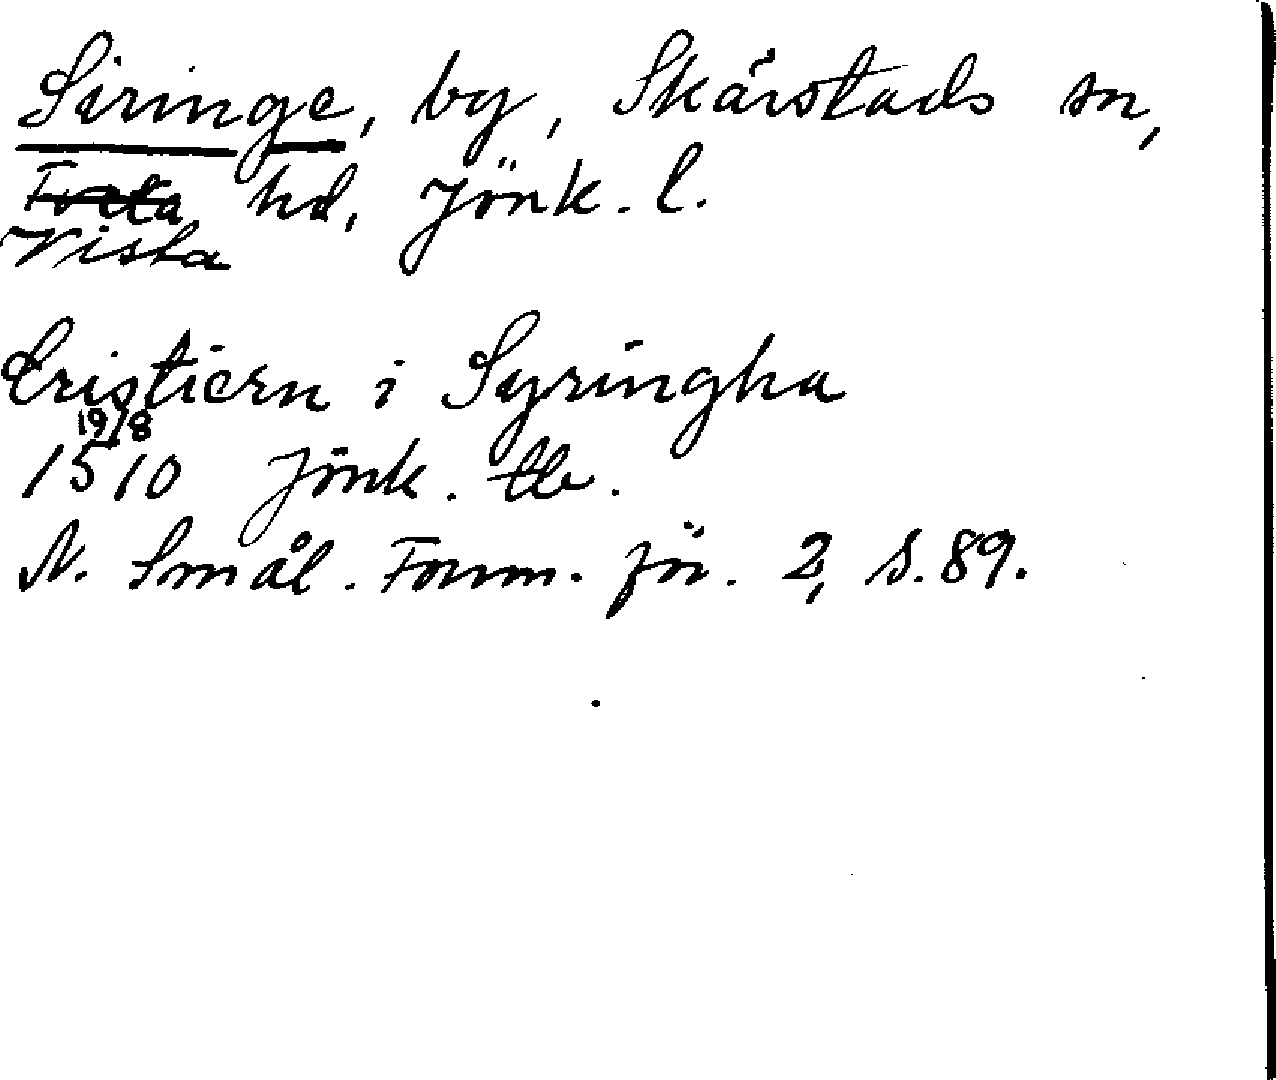 Siringe, by, Skärstads sn,
Tveta hd, Jönk. l.
Vista
Cristiern i Syringha
19/8
1510 Jönk. tb.
N. Smål. Fornm. för. 2, s. 89.